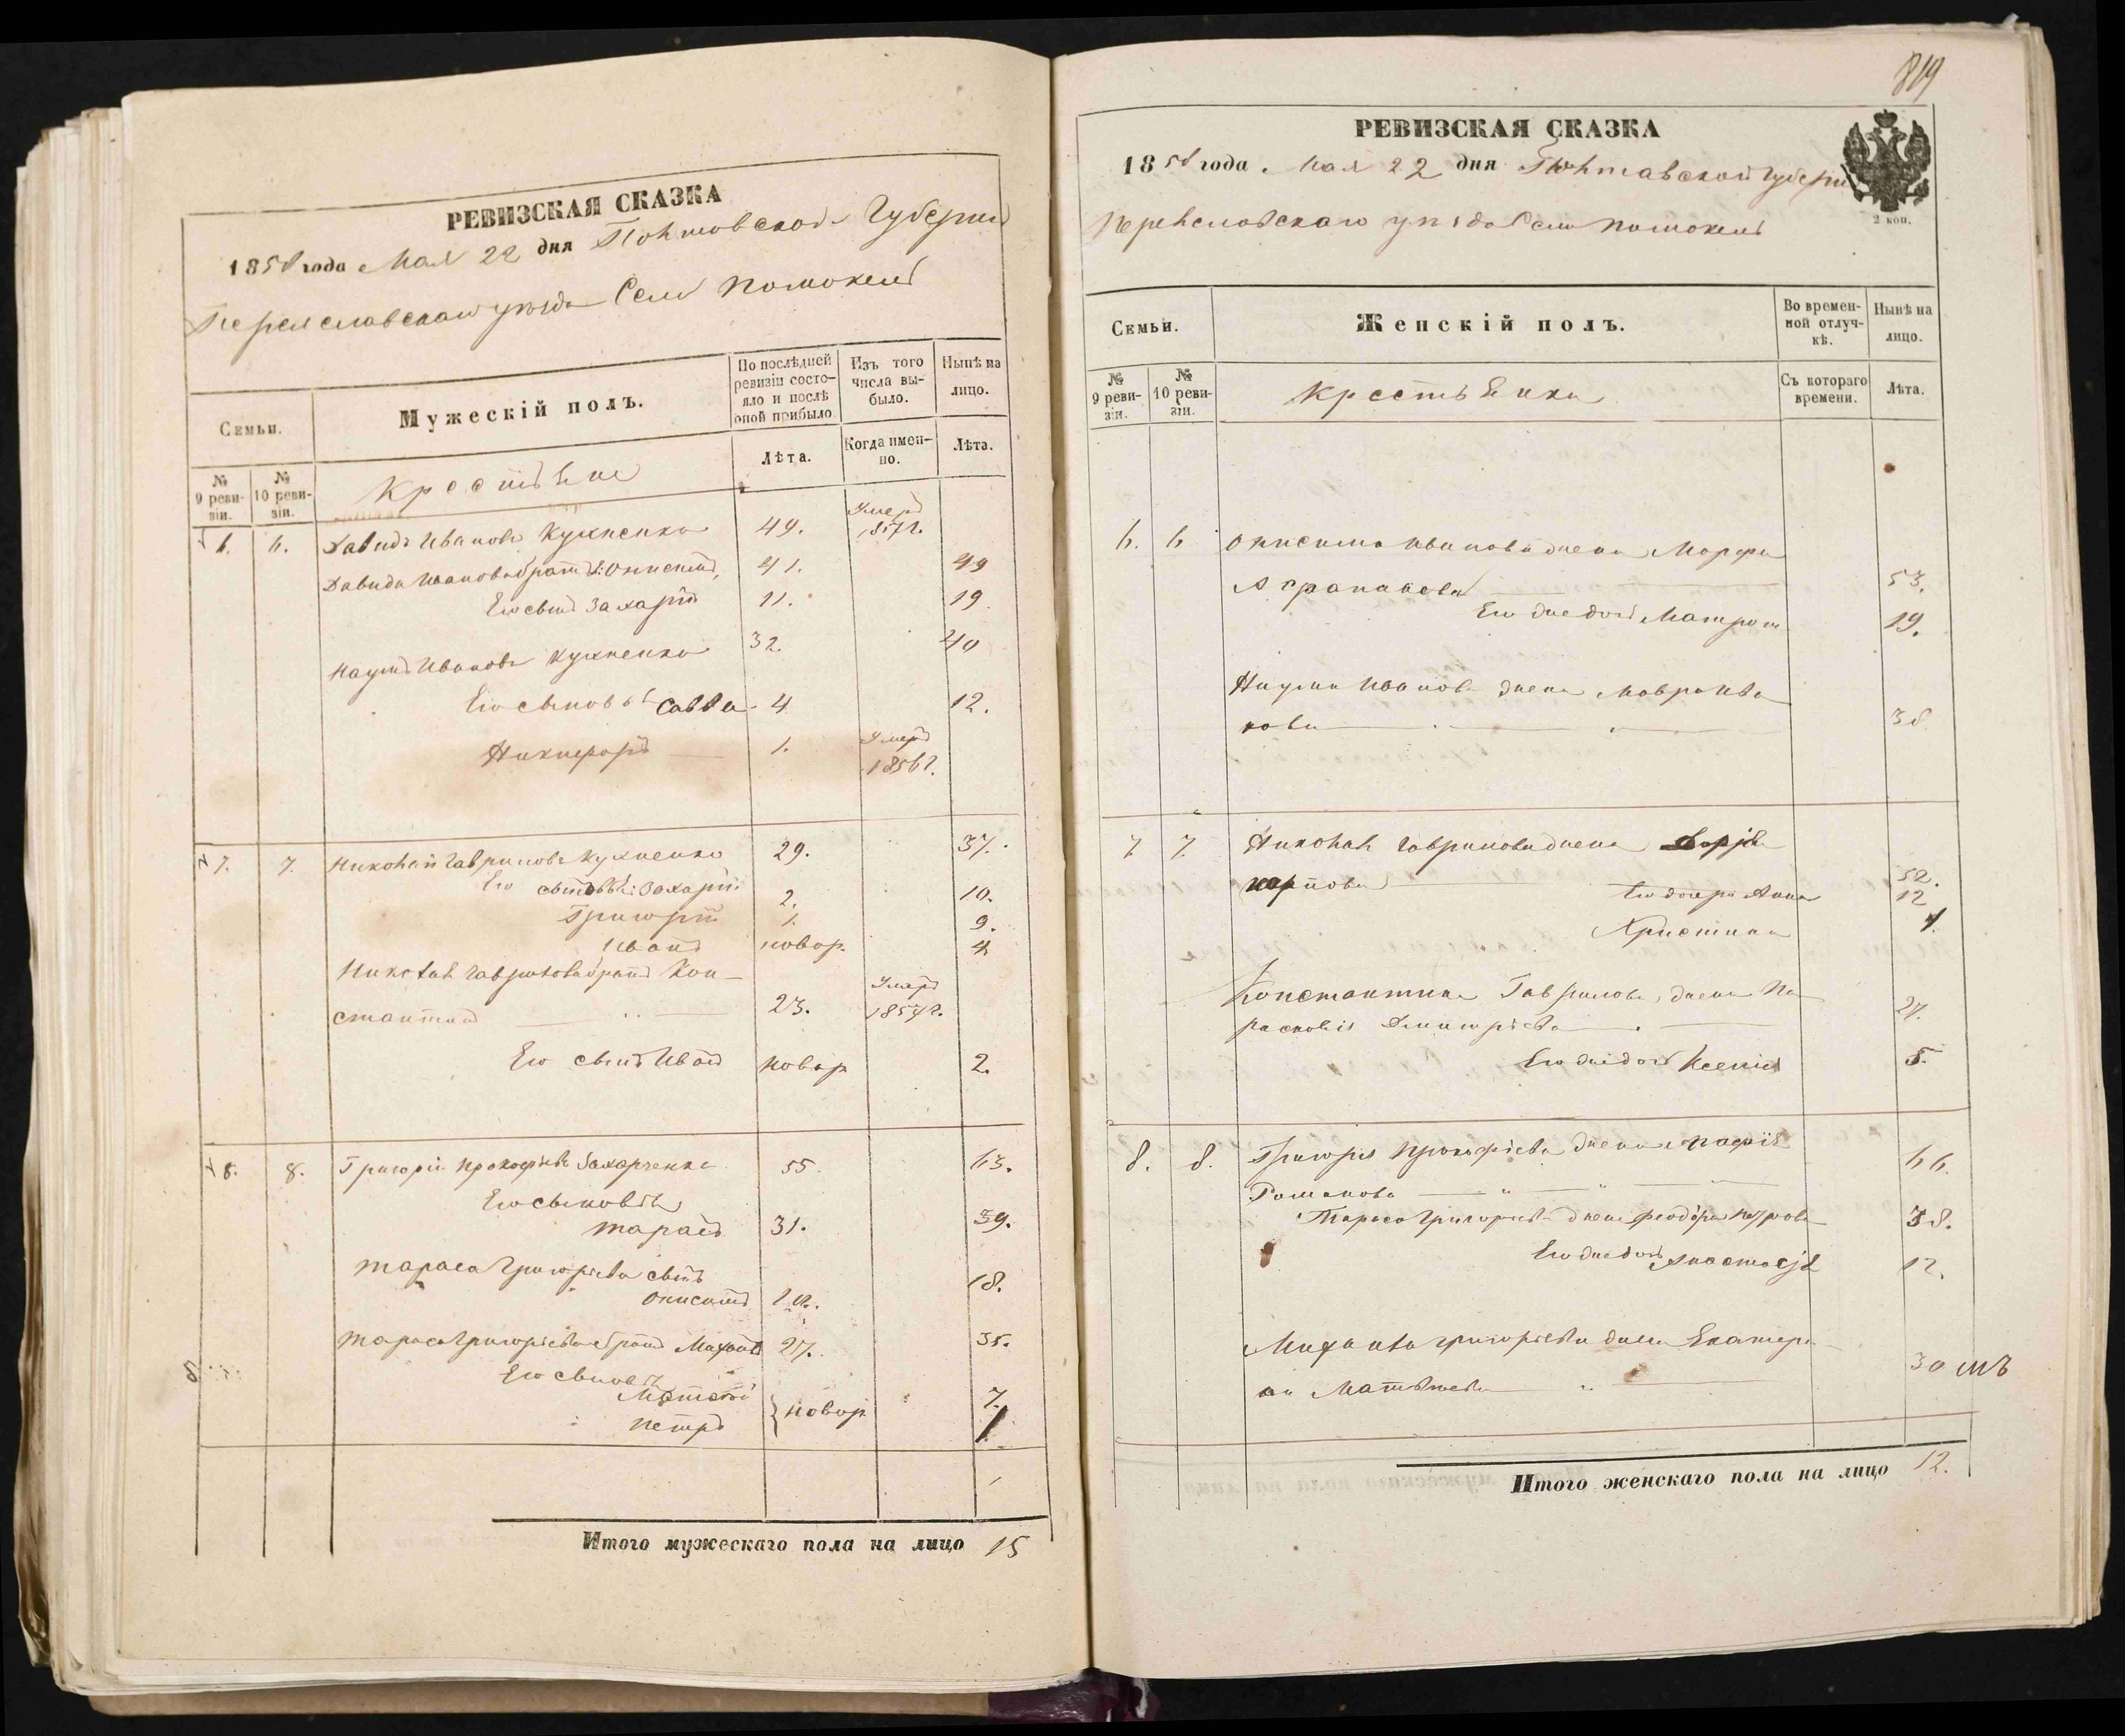 РЕВИЗСКАЯ СКАЗКА
1858 года Мая 22 дня Полтавской Губернии
Переяславскаго уезда Села Помоклей
Семьи.
Мужескій полъ.
По послѣдней ревизіи состояло и послѣ оной прибыло
Изъ того числа выбыло.
Нынѣ на лицо.
№ 9 ревизіи.
№ 10 ревизіи.
Крестьяне
Лѣта.
Когда именно.
Лѣта.
6. 6. Давидъ Ивановъ Кухненко 49. Умеръ 1857 г.
Давида Иванова братъ Онисимъ, 41. 49
Его сынъ Захарій 11. 19.
Наумъ Ивановъ Кухненко 32. 40
Его сыновья Савва 4 12.
Никифоръ 1. Умеръ 1856 г.
7. 7. Николай Гавриловъ Кухненко 29. 37.
Его сыновья: Захарій 2. 10.
Григорій 1. 9.
Иванъ новор. 4
Николая Гаврилова братъ Кон-
стантинъ 23. Умеръ 1857 г.
Его сынъ Иванъ новор 2.
8. 8. Григорій Прокофьевъ Захарченко 55. 63.
Его сыновья
Тарасъ 31. 39.
Тараса Григорьева сынъ
Онисимъ 10. 18.
Тараса Григорьева братъ Михаилъ 27. 35.
Его сыновья
7.
Петръ } новор 1
Итого мужескаго пола на лицо 15
819
РЕВИЗСКАЯ СКАЗКА
1858 года Мая 22 дня Полтавской Губерни
Переяславскаго уезда Села Помоклей
2 коп.
Семьи.
Женскій полъ.
Во временной отлучкѣ.
Нынѣ на лицо.
№ 9 ревизіи.
№ 10 ревизіи.
Крестьянки
Съ котораго времени.
Лѣта.
6. 6 Онисима Иванова жена Марфа
53.
Его же дочь Матрона 19.
Наума Иванова жена Мавра Ива
нова 38
7 7. Николая Гаврилова жена Дарья
Карпова 32.
Его дочери Анна 12
Христина 1.
Константина Гаврилова жена Па
расковія Дмитріева 27.
Его же дочь Ксенія 5.
8. 8. Григорія Прокофіева жена Марія
Романова 66.
Тараса Григорьева жена Феодора Петрова 38.
Его же дочь Анастасія 12.
Михаила Григорьева жена Екатери
на Матвѣева 30 лѣтъ
Итого женскаго пола на лицо 12.